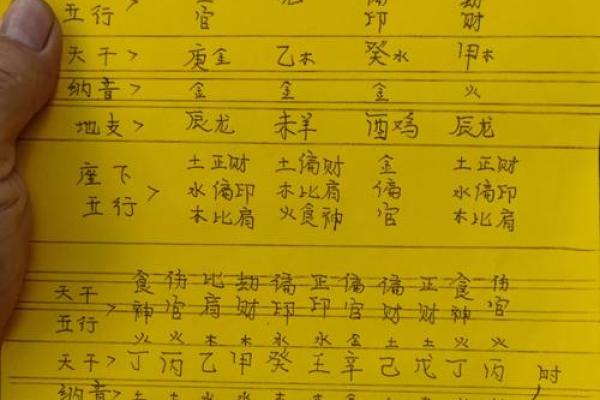 五行> 官 印 财
天干> 庚金 乙木 癸水 甲木
纳音> 金 金 金 火
地支> 辰龙 未羊 酉鸡 辰龙
座下五行>
土正财 土偏财 金 土正财
水偏印 木比肩 偏 水偏印
木比肩 火食神 官 木比肩
天干五行>
食 伤 比 劫 偏 正 偏 偏 正 食 伤
神 官 肩 财 印 印 官 财 财 神 官
火 火 木 木 水 水 金 土 土 火 火
天干> 丁 丙 乙 甲 癸 壬 辛 己 戊 丁 丙 时
纳音> 土 土 水 水